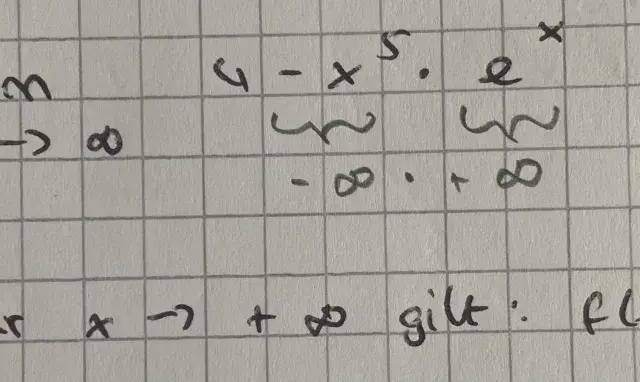 m 4 - x^5 · e^x
→ ∞
- ∞ · + ∞
r x → + ∞ gilt: f(